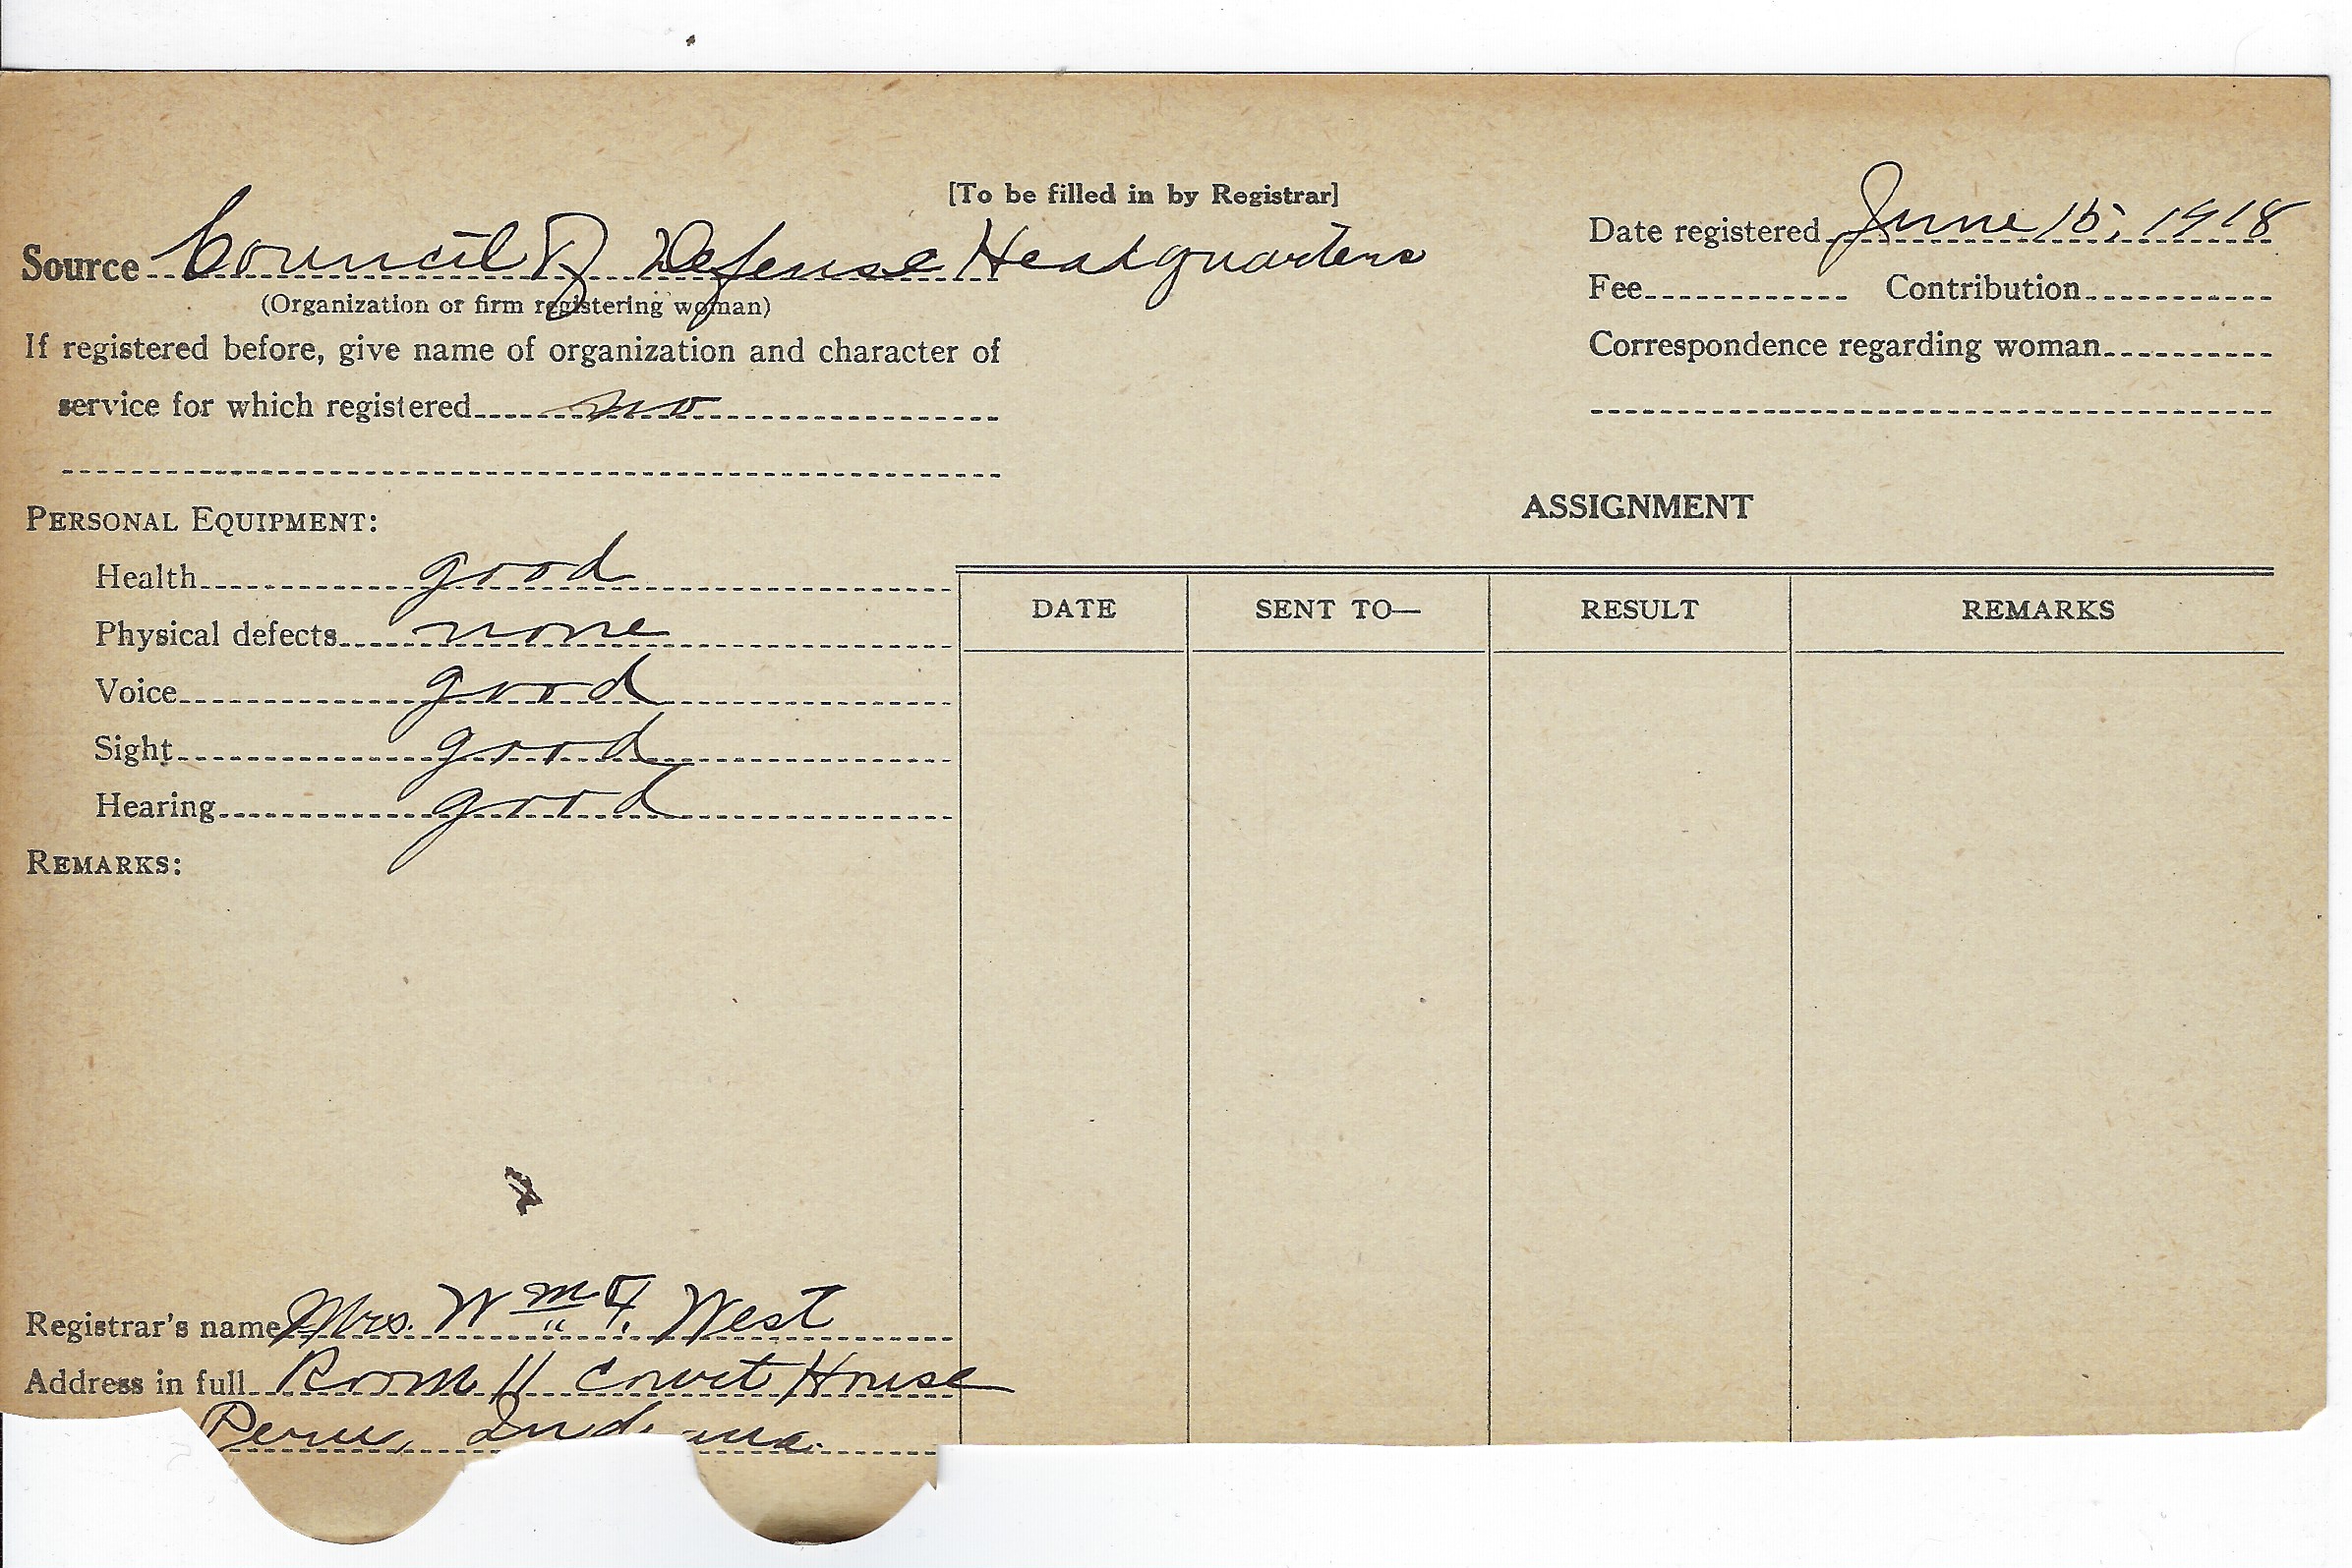 [To be filled in by Registrar]
Source Council of Defense Headquarters
(Organization or firm registering woman)
If registered before, give name of organization and character of
service for which registered no
Date registered June 15, 1918
Fee Contribution
Correspondence regarding woman
PERSONAL EQUIPMENT:
Health good
Physical defects none
Voice good
Sight good
Hearing good
REMARKS:
ASSIGNMENT
DATE SENT TO— RESULT REMARKS
Registrar's name Mrs. Wm F. West
Address in full Room 11 Court House
Peru, Indiana.